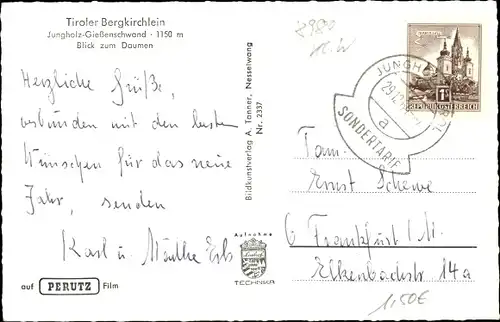 Tiroler Bergkirchlein
Jungholz-Gießenschwand · 1150 m
Blick zum Daumen
Herzliche Grüße,
verbunden mit den besten
Wünschen für das neue
Jahr, senden
Karl u. Erb
auf PERUTZ Film
Bildkunstverlag A. Tanner, Nesselwang
Nr. 2337
Aufnahme
TECHNIKER
2980
JUNGHOLZ TIROL
29.12.
a
SONDERTARIF
1S
REPUBLIK ÖSTERREICH
Fam.
Ernst Schewe
6 Frankfurt/M.
Elkenbachstr 14a
1,50€